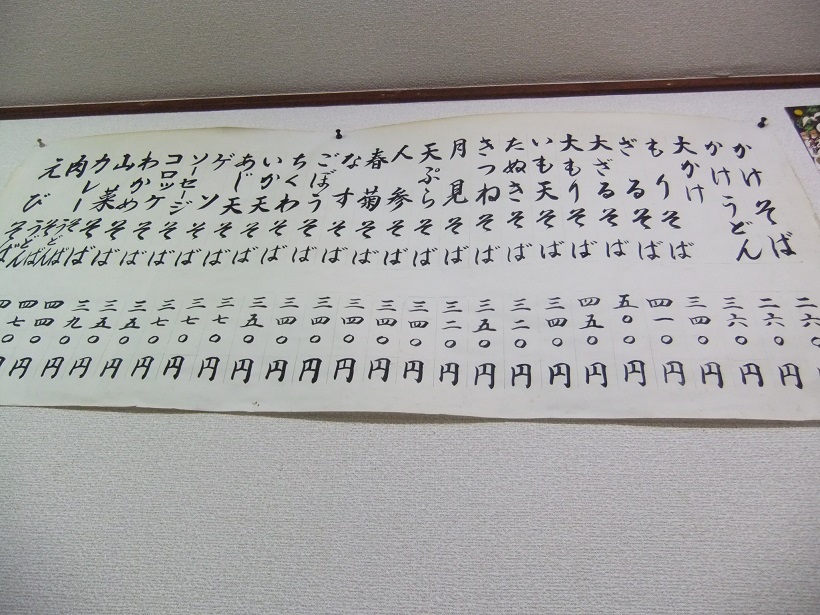 かけそば
かけうどん
大かけそば
もりそば
ざるそば
大ざるそば
大もりそば
いも天そば
たぬきそば
きつねそば
月見そば
天ぷらそば
人参そば
春菊そば
なすそば
ごぼうそば
ちくわそば
いか天そば
あじ天そば
ゲソそば
ソーセージそば
コロッケそば
わかめそば
山菜そば
カレーそばうどん
肉そばうどん
えびそば
二六〇円
二六〇円
三六〇円
三四〇円
四一〇円
五〇〇円
四五〇円
三四〇円
三二〇円
三五〇円
三二〇円
三四〇円
三四〇円
三四〇円
三四〇円
三四〇円
三五〇円
三七〇円
三七〇円
三七〇円
三五〇円
三五〇円
三九〇円
四四〇円
四四〇円
四七〇円